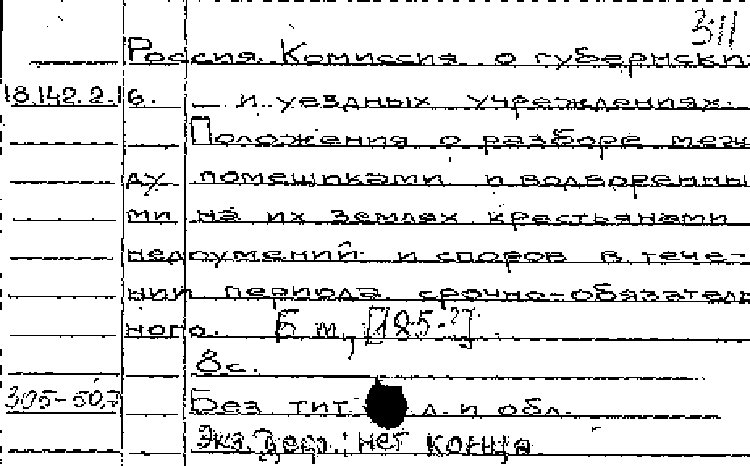 311
Россия. Комиссия о губернски
18.142.2.16. — и уездных учреждениях.
Положения о разборе меж
ду помещиками и водворенны
ми на их землях крестьянами
недоумений и споров в тече-
нии периода срочно-обязатель
ного. Б.м., [185-?].
8с.
305-50,7 Без тит. л. и обл.
Экз. деф.: нет конца